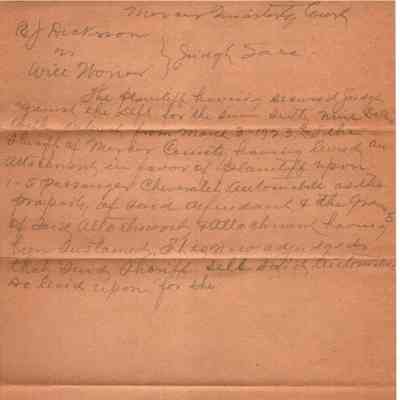 Mercer Quarterly Court
R J Dickson
vs } Judgh Sale.
Will Honor
The Plaintiff having secured judg
against the deft for the sum Sixty Nine &
from March 3 1923 & the
Sheriff of Mercer County having levied an
Attachment in favor of Plaintiff upon
1-5 passenger Chevrolet Automobile as the
property of said defendant & the Grounds
of said Attachment & Attachment having
been sustained, It is now adjudged
that said Sheriff sell said Automobile
so levied upon for the